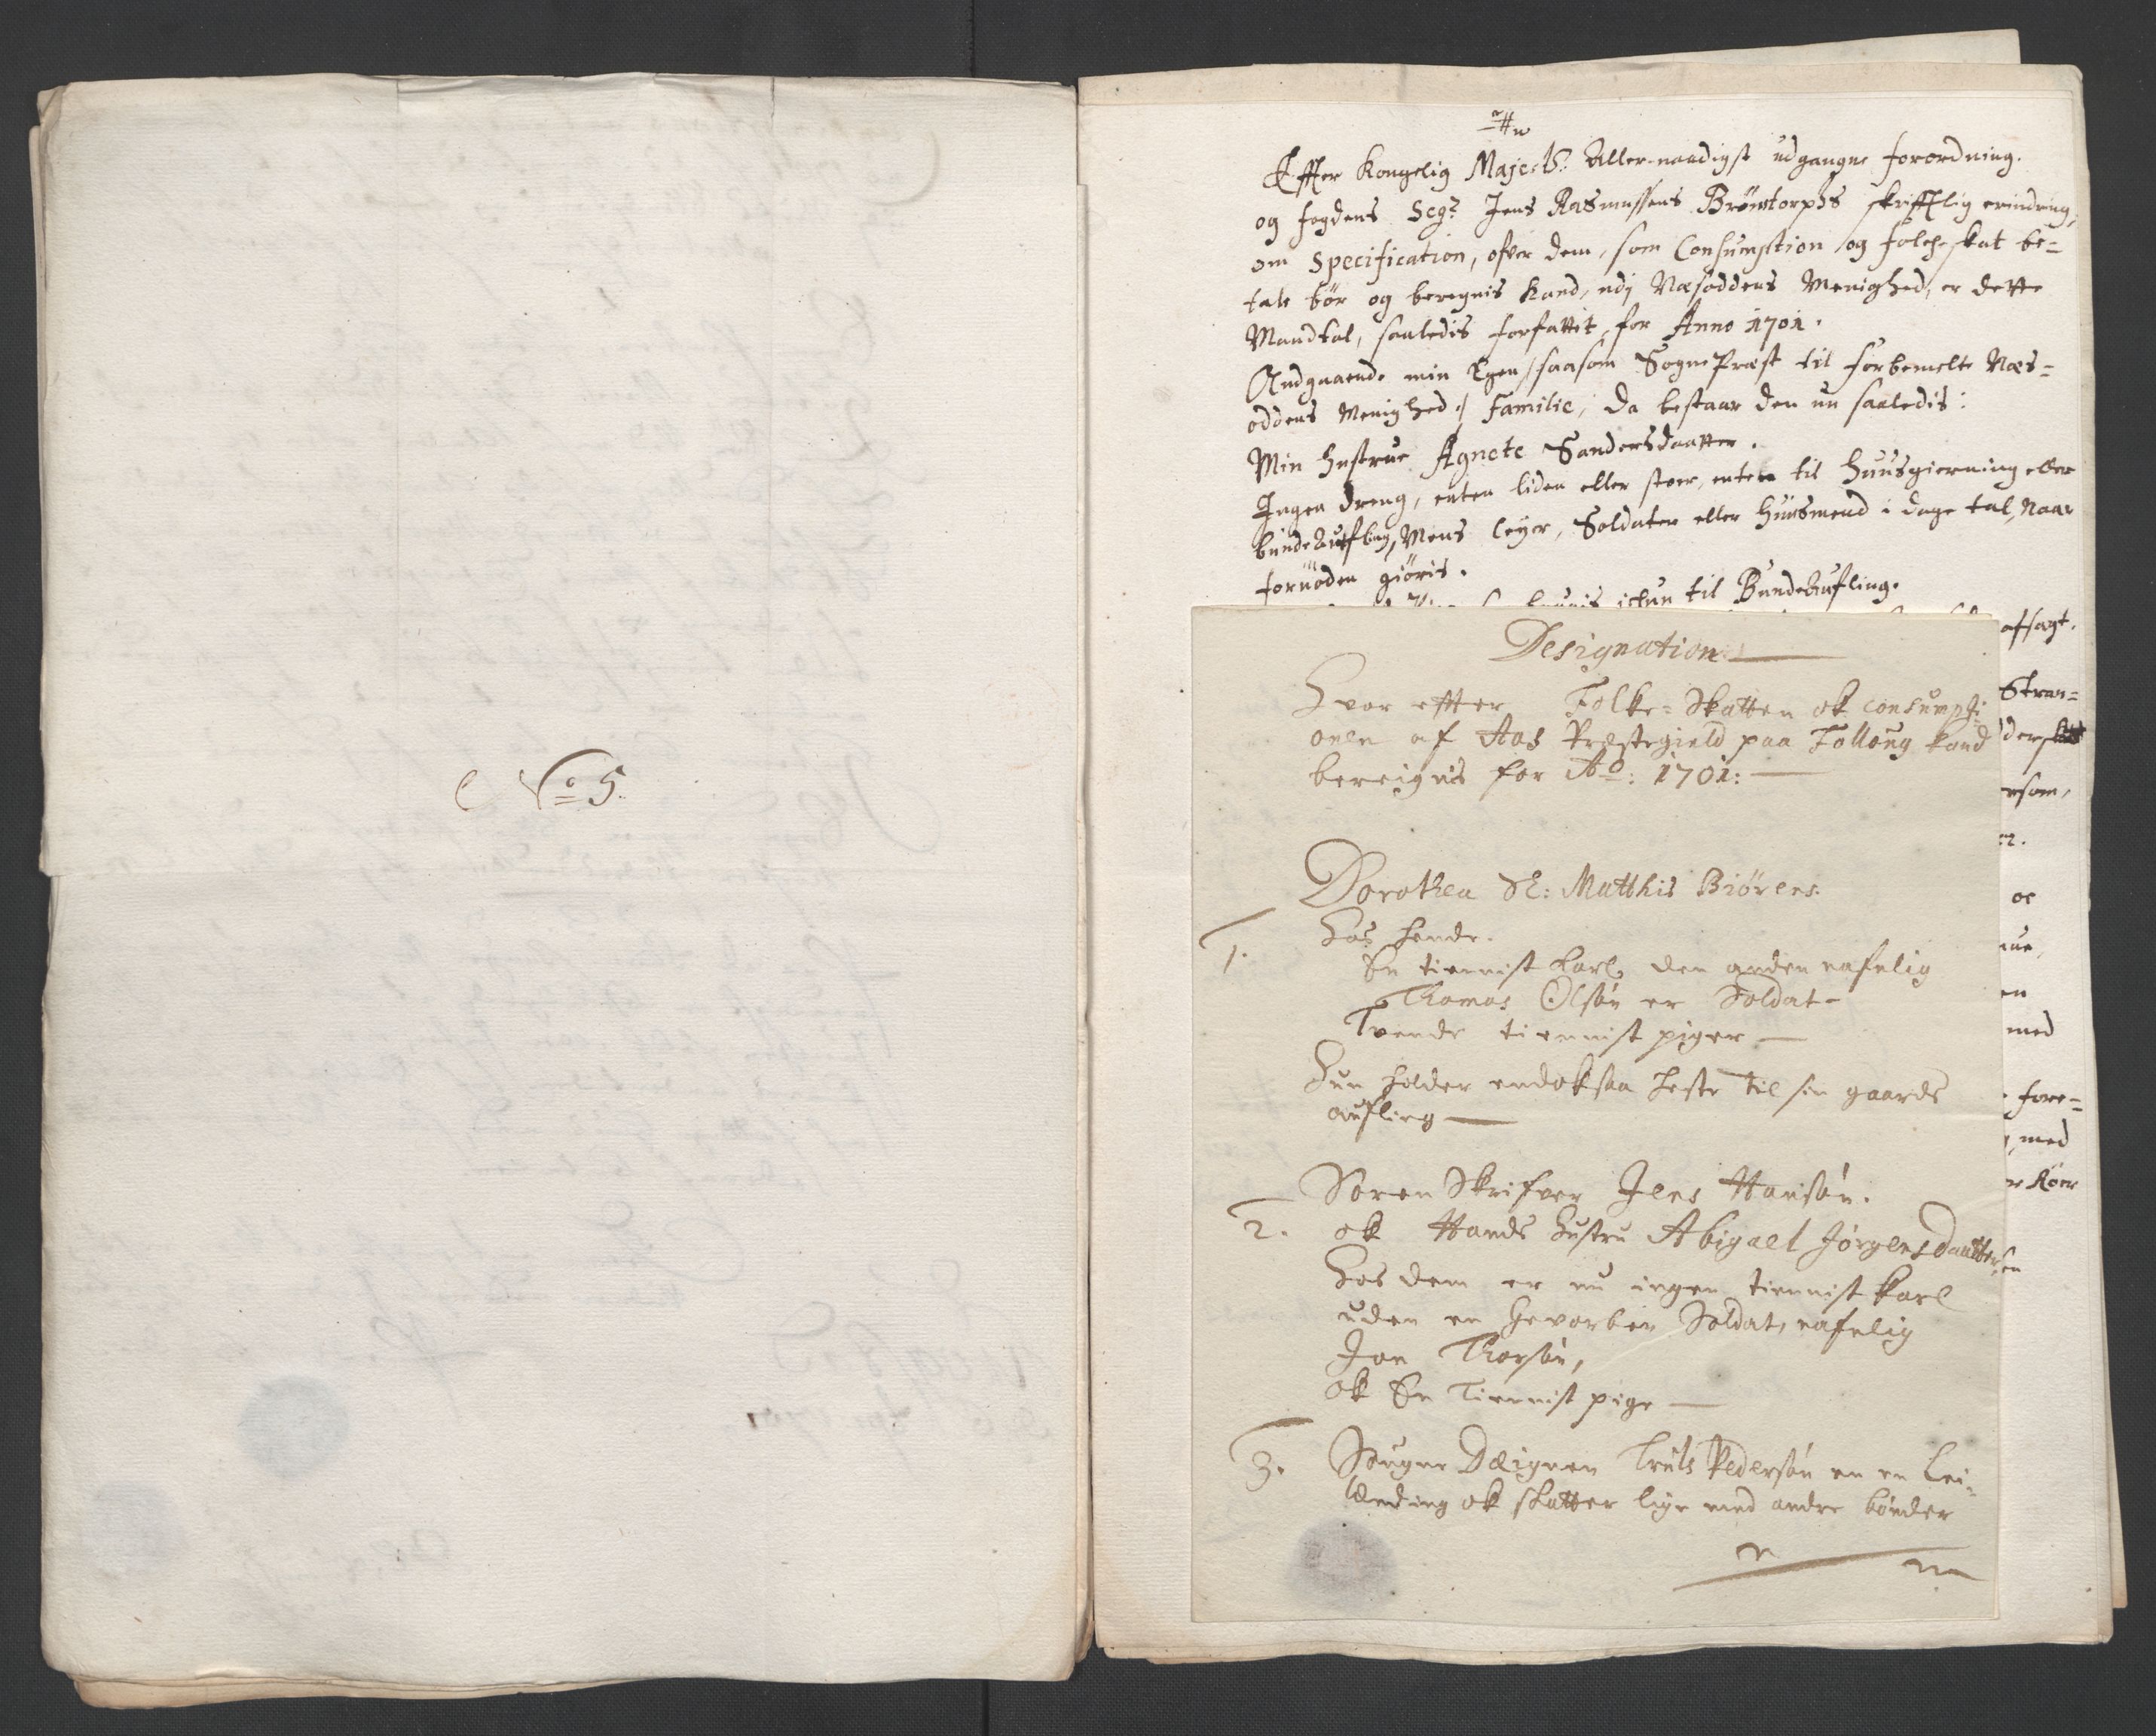 No 5.
Effter Kongelig Majestz. Aller-naadigst udgangne forordning.
og fogdens Sgr Jens Rasmussens Brønstorphs skrifftlig erindring,
om Specification, ofver dem, som Consumption og folche skat be=
tale bør og beregnis kand, udj Næsoddens Menighed, er dette
Mandtal, saaledis forfattit, for Anno 1701.
Andgaaende min Egen /: saasom SognePræst til forbemelte Næs=
oddens Menighed :/ Familie, da bestaar den nu saaledis:
Min Hustrue Agnete Sandersdaatter.
Ingen dreng, enten liden eller stoer, enten til Huusgierning eller
bunde aufling, Mens leyer, Soldater eller Huusmend i dage tal, Naar
fornøden giøris.
til Bundeaufling.
afsagt.
Stran=
ersom,
oc
en
med
fore=
, med
Køer
Designation
Hvor effter Folke-Skatten ok consumpti=
onen af Aas Præstegield paa Follоug kand
bereignis for Ao: 1701:
Dorothea Sl: Matthis Biørens.
1. Hos hende.
En tiennist karl, den anden nafnlig
Thomas Olsøn er Soldat-
Tvende tiennist piger
Hun holder endoksaa heste til sin gaards
aufling
Soren Skrifver Jens Hansøn.
2. ok Hands hustru Abigael Jørgensdaatter,
Hos dem er nu ingen tiennist karl
uden en Gevorben Soldat, nafnlig
Jon Thorsøn,
ok En Tiennist pige
3. Sougne Dæignen Truls Pedersøn en en Lei=
lænding ok skatter lige med andre bønder